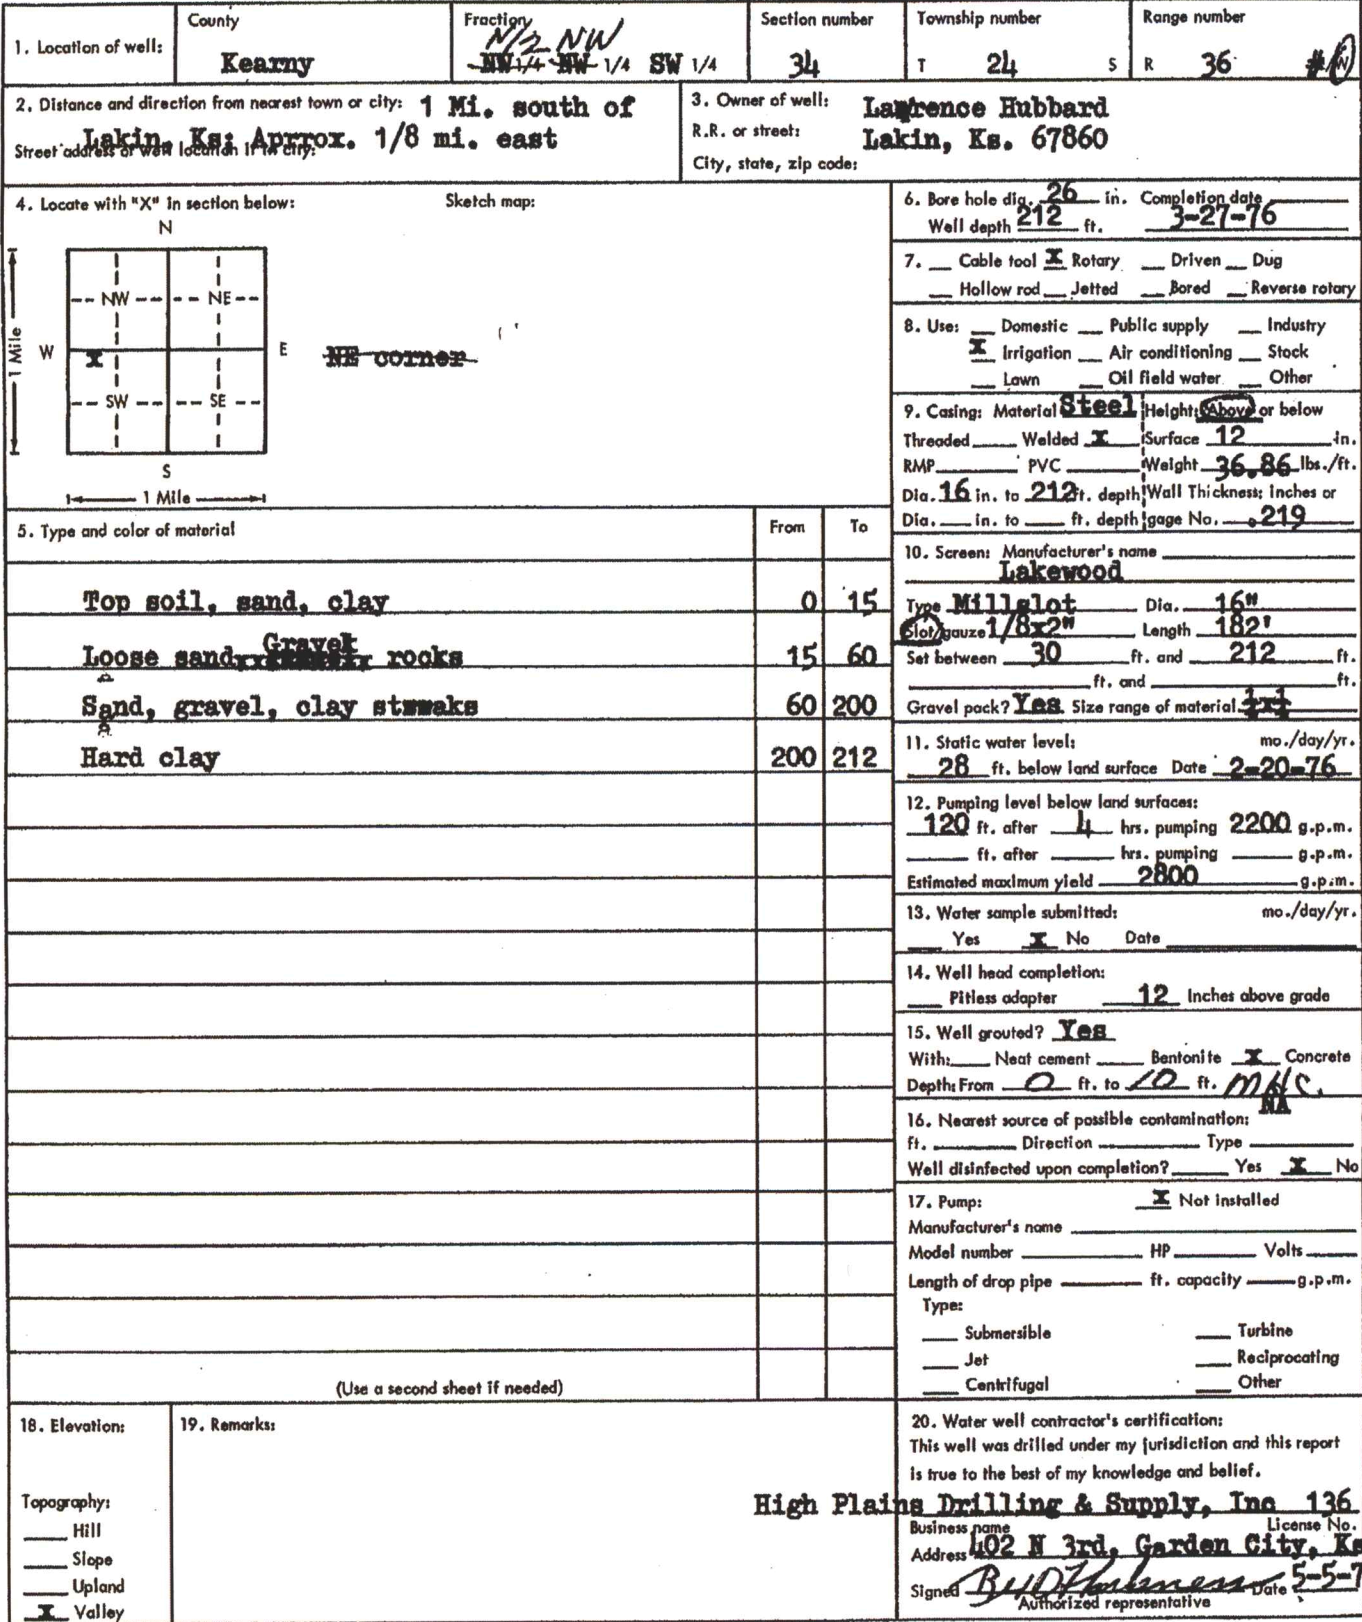 1. Location of well:
County
Kearny
Fraction
N/2 NW
NW 1/4 NW 1/4 SW 1/4
Section number
34
Township number
T 24 S
Range number
R 36
2. Distance and direction from nearest town or city: 1 Mi. south of
Lakin, Ks; Aprrox. 1/8 mi. east
Street address or well location if in city:
3. Owner of well: Lawrence Hubbard
R.R. or street: Lakin, Ks. 67860
City, state, zip code:
4. Locate with "X" in section below:
Sketch map:
N
NW NE
W E
X
SW SE
S
1 Mile
1 Mile
NE corner
5. Type and color of material From To
Top soil, sand, clay 0 15
Gravel
Loose sand rocks 15 60
Sand, gravel, clay 60 200
Hard clay 200 212
(Use a second sheet if needed)
6. Bore hole dia. 26 in. Completion date
Well depth 212 ft. 3-27-76
7. Cable tool X Rotary Driven Dug
Hollow rod Jetted Bored Reverse rotary
8. Use: Domestic Public supply Industry
X Irrigation Air conditioning Stock
Lawn Oil field water Other
9. Casing: Material Steel Height: Above or below
Threaded Welded X Surface 12 in.
RMP PVC Weight 36.86 lbs./ft.
Dia. 16 in. to 212 ft. depth Wall Thickness: inches or
Dia. in. to ft. depth gage No. .219
10. Screen: Manufacturer's name
Lakewood
Type Millslot Dia. 16"
Slot/gauze 1/8x2" Length 182'
Set between 30 ft. and 212 ft.
ft. and ft.
Gravel pack? Yes Size range of material
11. Static water level: mo./day/yr.
28 ft. below land surface Date 2-20-76
12. Pumping level below land surfaces:
120 ft. after 4 hrs. pumping 2200 g.p.m.
ft. after hrs. pumping g.p.m.
Estimated maximum yield 2800 g.p.m.
13. Water sample submitted: mo./day/yr.
Yes X No Date
14. Well head completion:
Pitless adapter 12 Inches above grade
15. Well grouted? Yes
With: Neat cement Bentonite X Concrete
Depth: From 0 ft. to 10 ft. MHC.
NA
16. Nearest source of possible contamination:
ft. Direction Type
Well disinfected upon completion? Yes X No
17. Pump: X Not installed
Manufacturer's name
Model number HP Volts
Length of drop pipe ft. capacity g.p.m.
Type:
Submersible Turbine
Jet Reciprocating
Centrifugal Other
18. Elevation:
Topography:
Hill
Slope
Upland
X Valley
19. Remarks:
20. Water well contractor's certification:
This well was drilled under my jurisdiction and this report
is true to the best of my knowledge and belief.
High Plains Drilling & Supply, Inc 136
Business name License No.
Address 402 N 3rd, Garden City, Ks
Signed Date 5-5-7
Authorized representative